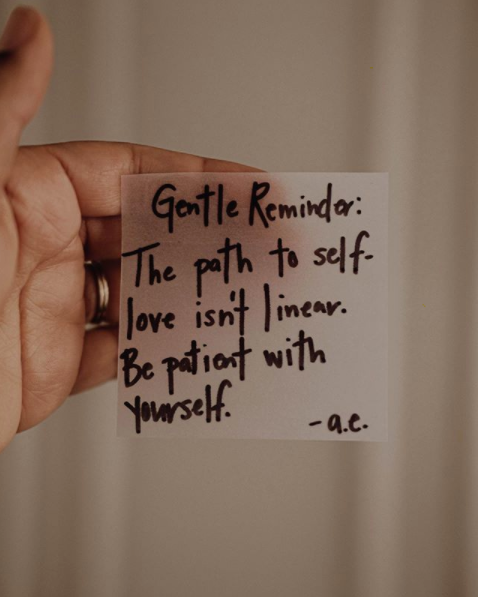 Gentle Reminder:
The path to self-
love isn't linear.
Be patient with
yourself.
-a.e.